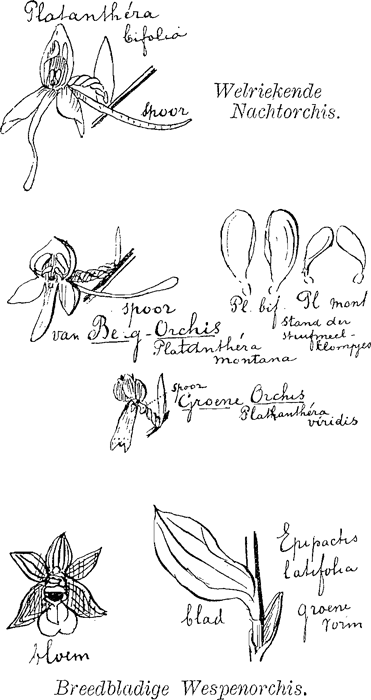 Platanthéra
bifolia
spoor
Welriekende
Nachtorchis.
spoor
van Berg-Orchis
Platanthéra
montana
Pl. bif. Pl mont
Stand der
stuifmeel-
klompjes
spoor
Groene Orchis
Platanthéra
viridis
bloem
blad
Epipactis
latifolia
groene
vorm
Breedbladige Wespenorchis.